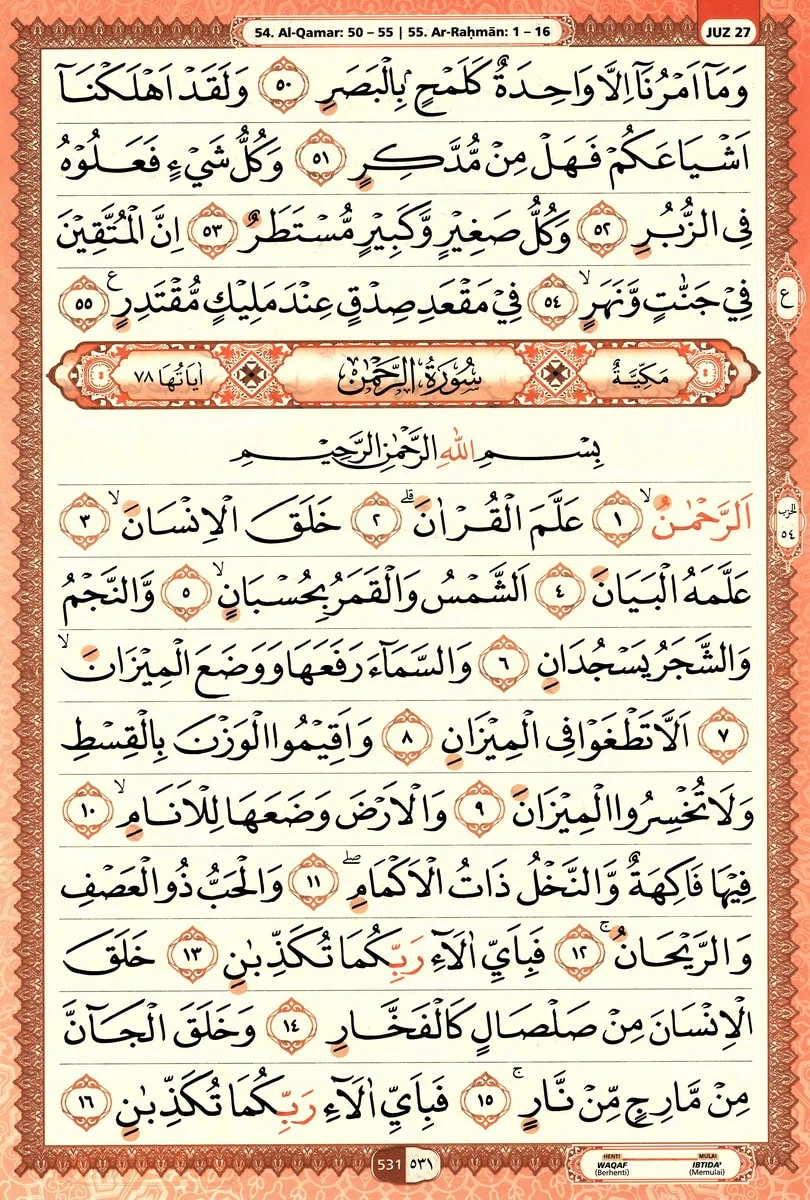 54. Al-Qamar: 50 – 55 | 55. Ar-Raḥmān: 1 – 16
JUZ 27
وَمَآ اَمْرُنَآ اِلَّا وَاحِدَةٌ كَلَمْحٍۢ بِالْبَصَرِ ٥٠ وَلَقَدْ اَهْلَكْنَآ
اَشْيَاعَكُمْ فَهَلْ مِنْ مُّدَّكِرٍ ٥١ وَكُلُّ شَيْءٍ فَعَلُوْهُ
فِى الزُّبُرِ ٥٢ وَكُلُّ صَغِيْرٍ وَّكَبِيْرٍ مُّسْتَطَرٌ ٥٣ اِنَّ الْمُتَّقِيْنَ
فِيْ جَنّٰتٍ وَّنَهَرٍۙ ٥٤ فِيْ مَقْعَدِ صِدْقٍ عِنْدَ مَلِيْكٍ مُّقْتَدِرٍ ࣖ ٥٥
ع
مَكِّيَّةٌ
سُوْرَةُ الرَّحْمٰنِ
اٰيَاتُهَا ٧٨
بِسْمِ اللّٰهِ الرَّحْمٰنِ الرَّحِيْمِ
اَلرَّحْمٰنُۙ ١ عَلَّمَ الْقُرْاٰنَۗ ٢ خَلَقَ الْاِنْسَانَۙ ٣
الحزب
٥٤
عَلَّمَهُ الْبَيَانَ ٤ اَلشَّمْسُ وَالْقَمَرُ بِحُسْبَانٍۙ ٥ وَّالنَّجْمُ
وَالشَّجَرُ يَسْجُدَانِ ٦ وَالسَّمَآءَ رَفَعَهَا وَوَضَعَ الْمِيْزَانَۙ
٧ اَلَّا تَطْغَوْا فِى الْمِيْزَانِ ٨ وَاَقِيْمُوا الْوَزْنَ بِالْقِسْطِ
وَلَا تُخْسِرُوا الْمِيْزَانَ ٩ وَالْاَرْضَ وَضَعَهَا لِلْاَنَامِۙ ١٠
فِيْهَا فَاكِهَةٌ وَّالنَّخْلُ ذَاتُ الْاَكْمَامِۖ ١١ وَالْحَبُّ ذُو الْعَصْفِ
وَالرَّيْحَانُۚ ١٢ فَبِاَيِّ اٰلَاۤءِ رَبِّكُمَا تُكَذِّبٰنِ ١٣ خَلَقَ
الْاِنْسَانَ مِنْ صَلْصَالٍ كَالْفَخَّارِ ١٤ وَخَلَقَ الْجَآنَّ
مِنْ مَّارِجٍ مِّنْ نَّارٍۚ ١٥ فَبِاَيِّ اٰلَاۤءِ رَبِّكُمَا تُكَذِّبٰنِ ١٦
531 ٥٣١
HENTI MULAI
WAQAF IBTIDA'
(Berhenti) (Memulai)